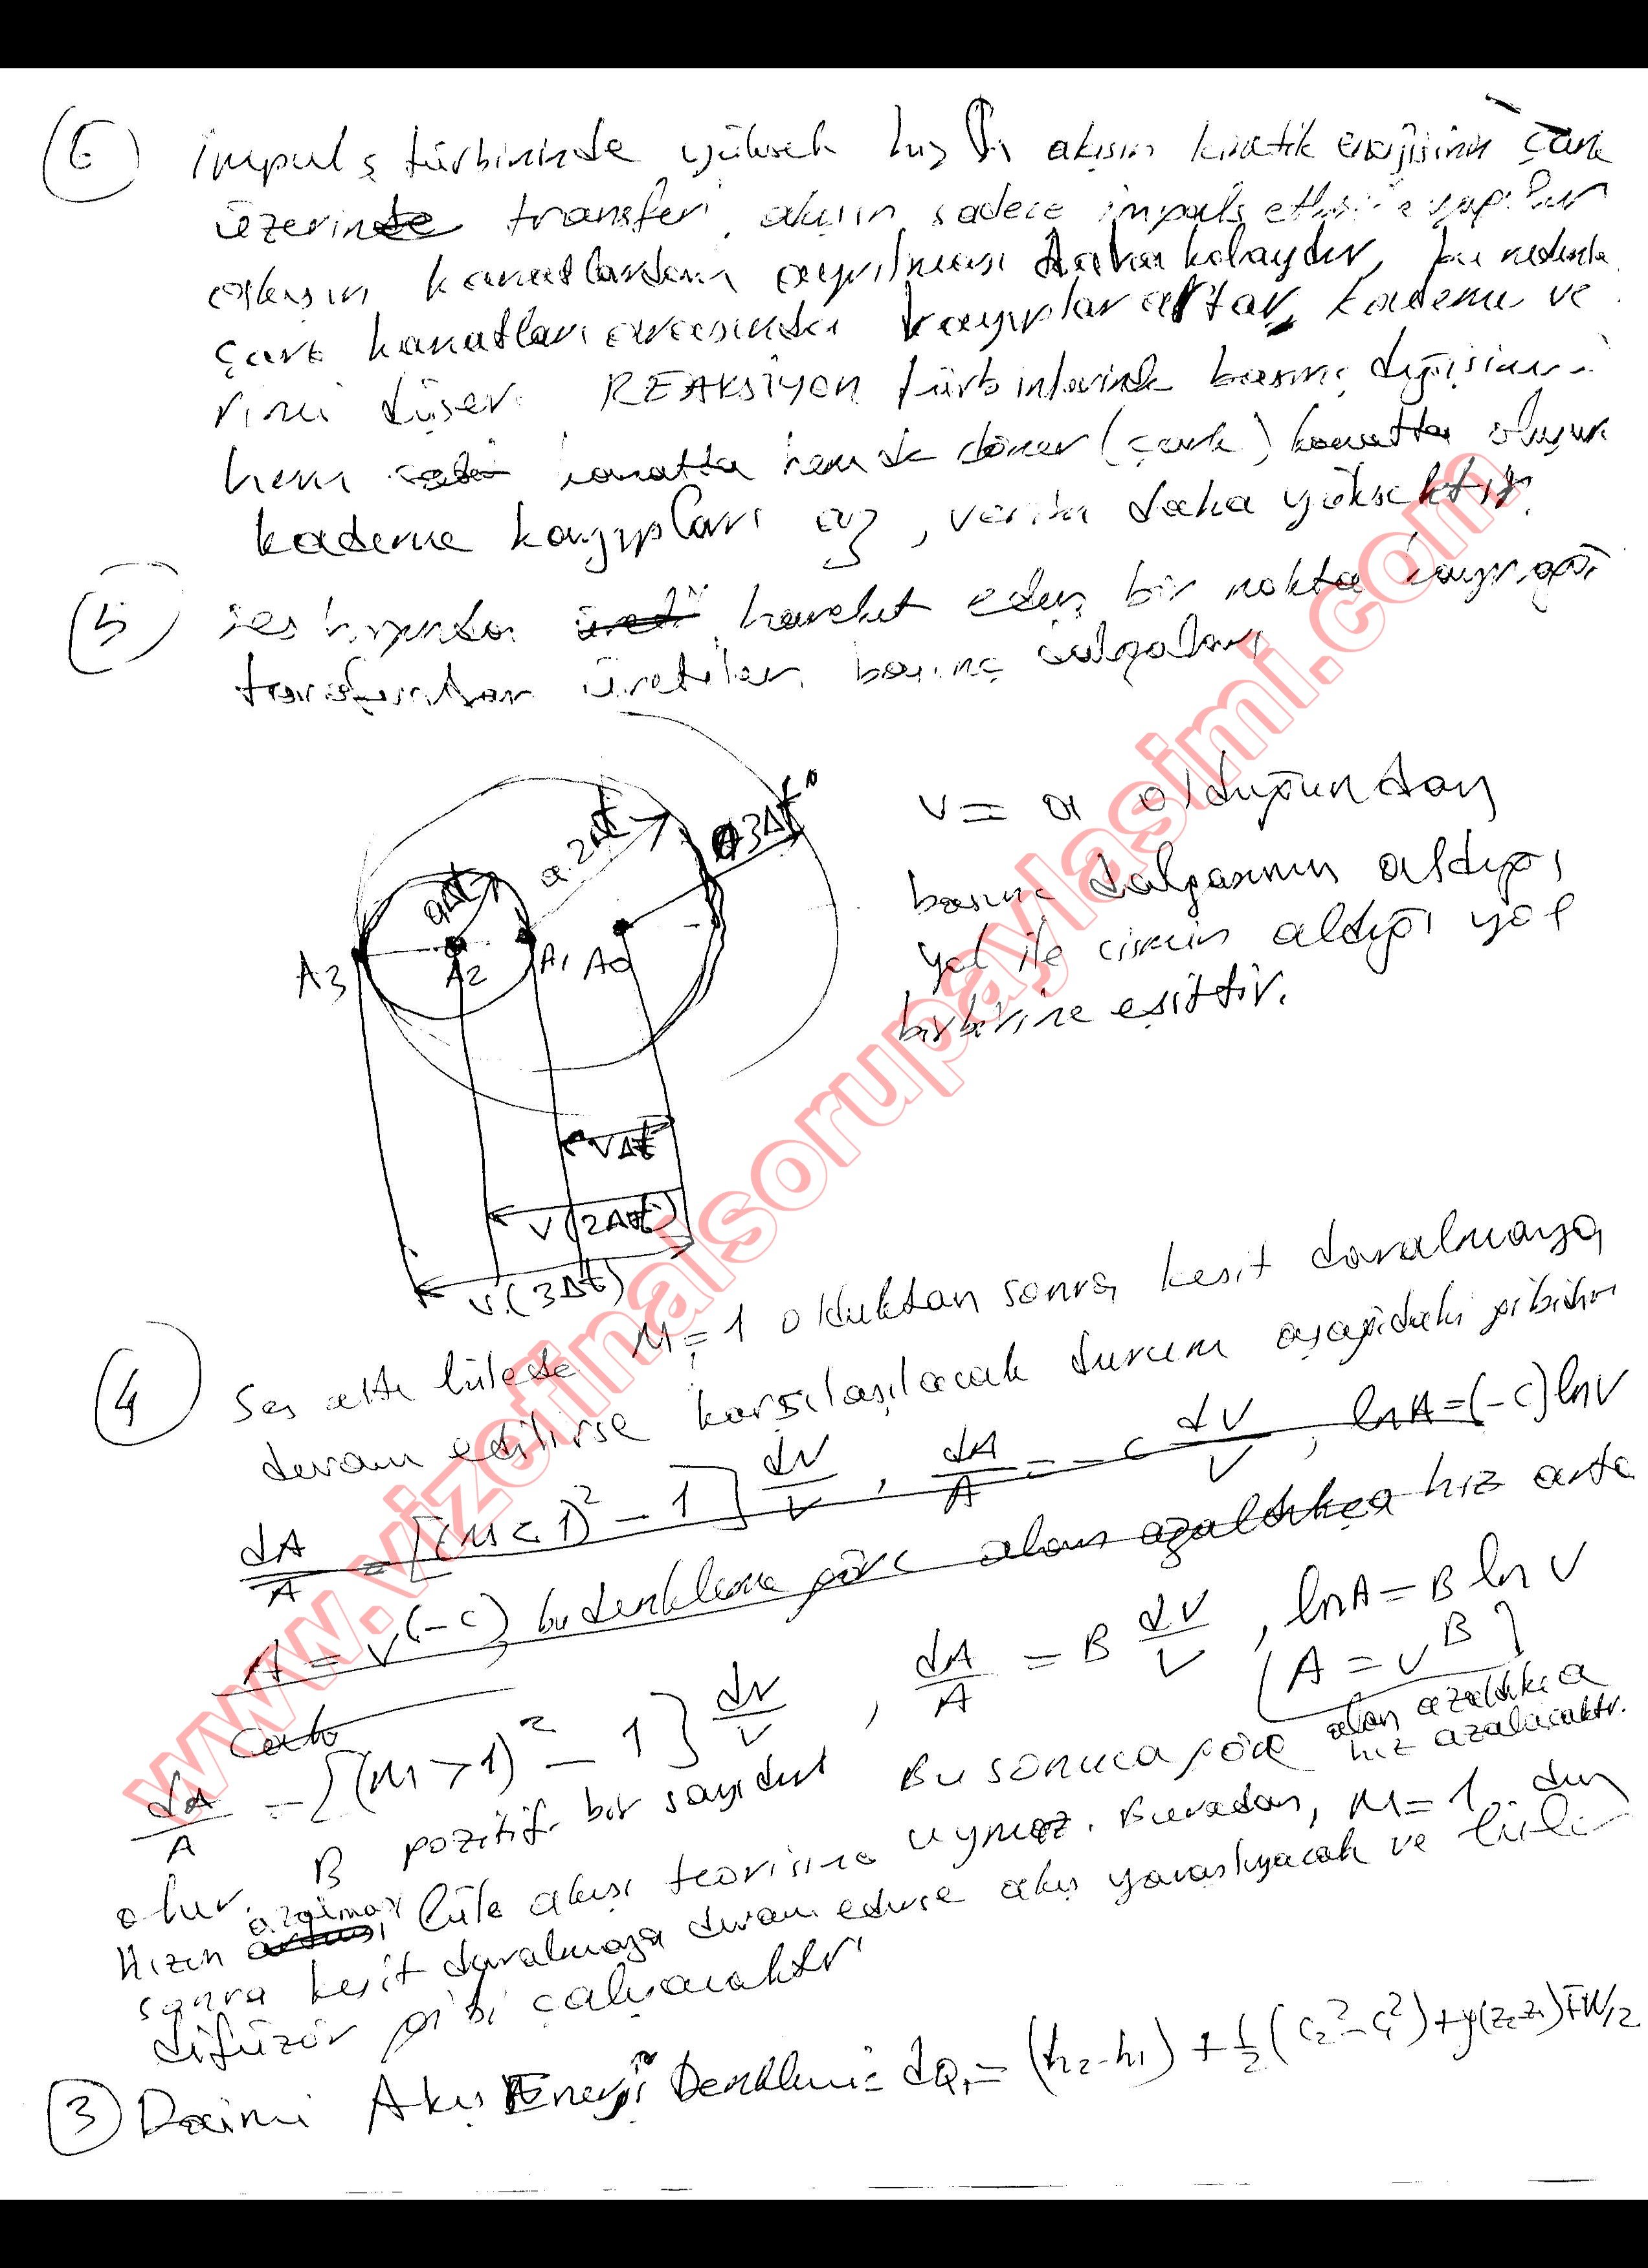 6 İmpuls türbininde yüksek hızlı akışın kinetik enerjisinin çark
üzerinde transferi, akışın sadece impuls etkisi
akışın kanatlardan ayrılması daha kolaydır, bu nedenle
çark kanatları arasındaki kayıplar artar, kademe ve
rimi düşer. REAKSİYON türbinlerinde basınç değişimi
hem kanatta hem de döner (çark) kanatta oluşur
kademe kayıpları az, verim daha yüksektir.
5 ses hızında hareket eden bir nokta kaynağı
tarafından üretilen basınç dalgaları
v = a olduğundan
basınç dalgasının aldığı
yol ile cismin aldığı yol
birbirine eşittir.
aΔt
a.2Δt
a3Δt
A3 A2 A1 A0
VΔt
V(2Δt)
V.(3Δt)
4 Ses altı lülede M=1 olduktan sonra kesit daralmaya
devam edilirse karşılaşılacak durum aşağıdaki gibidir
dA/A = [(M<1)²-1] dV/V, dA/A = -c dV/V, lnA=(-c)lnV
A = V^(-c), bu denkleme göre alan azaldıkça hız arta
cak
dA/A = [(M>1)²-1] dV/V, dA/A = B dV/V, lnA = B lnV
[A = V^B]
B pozitif bir sayıdır Bu sonuca göre alan azaldıkça
hız azalacaktır.
olur.
Hızın azalması lüle akışı teorisine uymaz. Buradan, M=1 den
sonra kesit daralmaya devam ederse akış yavaşlayacak ve lüle
difüzör gibi çalışacaktır
3 Daimi Akış Enerji Denklemi: dQ = (h2-h1) + 1/2 (c2²-c1²)+g(z2-z1)
www.vizefinalsorupaylasimi.com